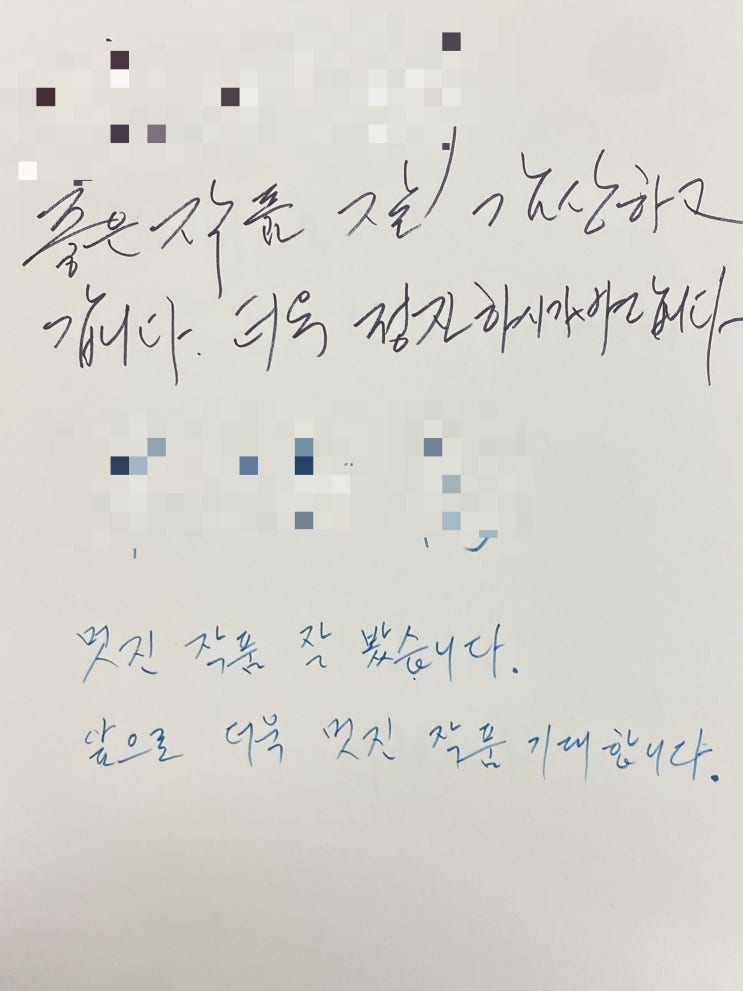 좋은 작품 잘 감상하고
갑니다. 더욱 정진하시기 바랍니다
멋진 작품 잘 봤습니다.
앞으로 더욱 멋진 작품 기대합니다.